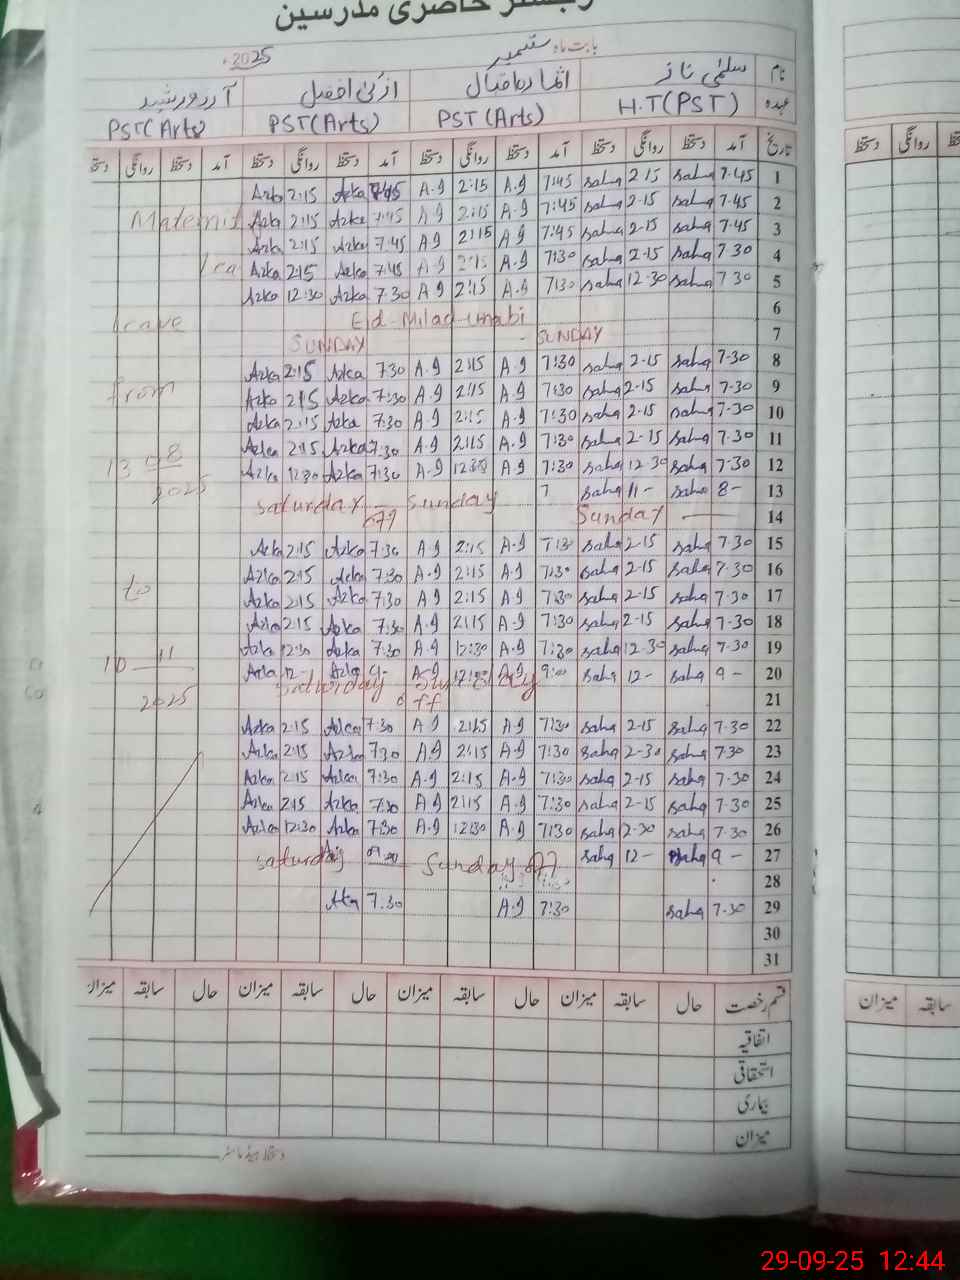 رجسٹر حاضری مدرسین
بابت ماہ ستمبر 2025
نام سلمٰی ناز ازکیٰ افضل
عہدہ H.T(PST) PST(Arts) PST(Arts) PST(Arts)
تاریخ آمد دستخط روانگی دستخط آمد دستخط روانگی دستخط آمد دستخط روانگی دستخط آمد دستخط روانگی دستخط
1 7.45 saha 2-15 saha 7:45 A.I 2:15 A.I 7:45 Azka 2:15 Azka
2 7.45 saha 2-15 saha 7:45 A.I 2:15 A.I 7:45 Azka 2:15 Azka Maternit
3 7.45 saha 2-15 saha 7:45 A.I 2:15 A.I 7:45 Azka 2:15 Azka
4 7.30 saha 2-15 saha 7:30 A.I 2:15 A.I 7:45 Azka 2:15 Azka
5 7.30 saha 12-30 saha 7:30 A.I 2:15 A.I 7.30 Azka 12:30 Azka
6 Eid-Milad-unabi leave
7 SUNDAY SUNDAY
8 7-30 saha 2-15 saha 7:30 A.I 2:15 A.I 7:30 Azka 2:15 Azka
9 7-30 saha 2-15 saha 7:30 A.I 2:15 A.I 7:30 Azka 2:15 Azka from
10 7-30 saha 2-15 saha 7:30 A.I 2:15 A.I 7:30 Azka 2:15 Azka
11 7-30 saha 2-15 saha 7:30 A.I 2:15 A.I 7:30 Azka 2:15 Azka
12 7-30 saha 12-30 saha 7:30 A.I 12:30 A.I 7:30 Azka 12:30 Azka 13 08
13 8- saha 11- saha 7 saturday Sunday 2025
14 Sunday off
15 7.30 saha 2-15 saha 7:30 A.I 2:15 A.I 7:30 Azka 2:15 Azka
16 7-30 saha 2-15 saha 7:30 A.I 2:15 A.I 7:30 Azka 2:15 Azka
17 7-30 saha 2-15 saha 7:30 A.I 2:15 A.I 7:30 Azka 2:15 Azka to
18 7-30 saha 2-15 saha 7:30 A.I 2:15 A.I 7:30 Azka 2:15 Azka
19 7-30 saha 12-30 saha 7:30 A.I 12:30 A.I 7:30 Azka 12:30 Azka
20 9- saha 12- saha 9:00 A.I 12:00 A.I 9- Azka 12- Azka Saturday Sunday 10 11
21 off 2025
22 7.30 saha 2-15 saha 7:30 A.I 2:15 A.I 7:30 Azka 2:15 Azka
23 7-30 saha 2-30 saha 7:30 A.I 2:15 A.I 7:30 Azka 2:15 Azka
24 7-30 saha 2-15 saha 7:30 A.I 2:15 A.I 7:30 Azka 2:15 Azka
25 7-30 saha 2-15 saha 7:30 A.I 2:15 A.I 7:30 Azka 2:15 Azka
26 7-30 saha 12-30 saha 7:30 A.I 12:30 A.I 7:30 Azka 12:30 Azka
27 9- saha 12- saha Sunday off saturday
28
29 7-30 saha 7:30 A.I 7.30 Aka
30
31
قسم رخصت حال سابقہ میزان حال سابقہ میزان حال سابقہ میزان حال سابقہ میزان
اتفاقیہ
استحقاقی
بیماری
میزان
دستخط ہیڈ ماسٹر
دستخط روانگی
سابقہ میزان
29-09-25 12:44